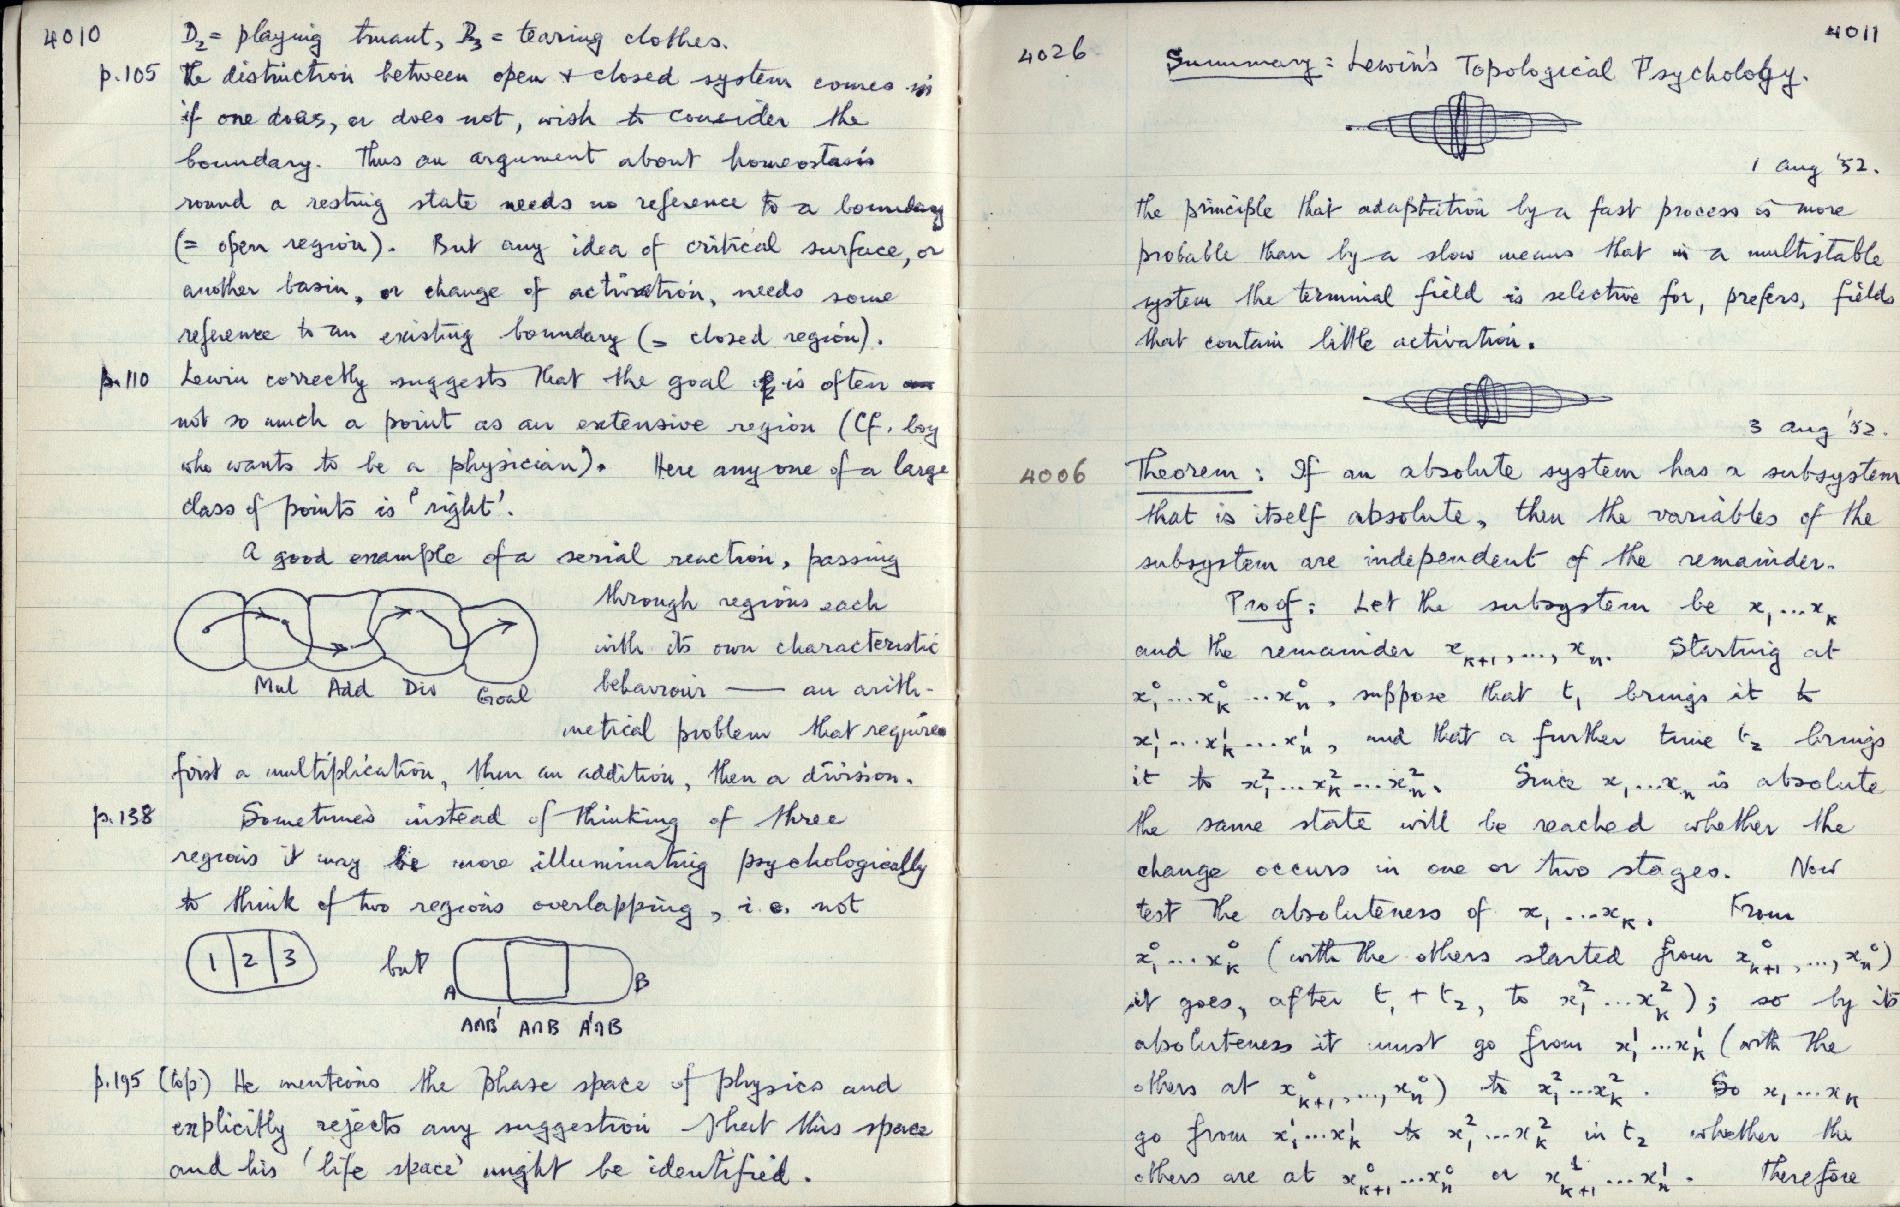 4010
D₂ = playing truant, D₃ = tearing clothes.
p.105 The distinction between open & closed system comes in
if one does, or does not, wish to consider the
boundary. Thus an argument about homeostasis
round a resting state needs no reference to a boundary
(= open region). But any idea of critical surface, or
another basin, or change of activation, needs some
reference to an existing boundary (= closed region).
p.110 Lewin correctly suggests that the goal is often
not so much a point as an extensive region (Cf. boy
who wants to be a physician). Here any one of a large
class of points is 'right'.
A good example of a serial reaction, passing
through regions each
with its own characteristic
behaviour — an arith-
metical problem that requires
Mul Add Div Goal
first a multiplication, then an addition, then a division.
p.138 Sometimes instead of thinking of three
regions it may be more illuminating psychologically
to think of two regions overlapping, i.e. not
1 2 3 but A B
A∩B' A∩B A'∩B
p.195 (top) He mentions the phase space of physics and
explicitly rejects any suggestion that this space
and his 'life space' might be identified.
4011
4026 Summary: Lewin's Topological Psychology.
1 Aug '52.
The principle that adaptation by a fast process is more
probable than by a slow means that in a multistable
system the terminal field is selective for, prefers, fields
that contain little activation.
3 Aug '52.
4006 Theorem: If an absolute system has a subsystem
that is itself absolute, then the variables of the
subsystem are independent of the remainder.
Proof: Let the subsystem be x₁...xₖ
and the remainder xₖ₊₁,...,xₙ. Starting at
x₁⁰...xₖ⁰...xₙ⁰, suppose that t₁ brings it to
x₁¹...xₖ¹...xₙ¹, and that a further time t₂ brings
it to x₁²...xₖ²...xₙ². Since x₁...xₙ is absolute
the same state will be reached whether the
change occurs in one or two stages. Now
test the absoluteness of x₁...xₖ. From
x₁⁰...xₖ⁰ (with the others started from xₖ₊₁⁰,...,xₙ⁰)
it goes, after t₁ + t₂, to x₁²...xₖ²); so by its
absoluteness it must go from x₁¹...xₖ¹ (with the
others at xₖ₊₁⁰,...,xₙ⁰) to x₁²...xₖ². So x₁...xₖ
go from x₁¹...xₖ¹ to x₁²...xₖ² in t₂ whether the
others are at xₖ₊₁⁰...xₙ⁰ or xₖ₊₁¹...xₙ¹. Therefore